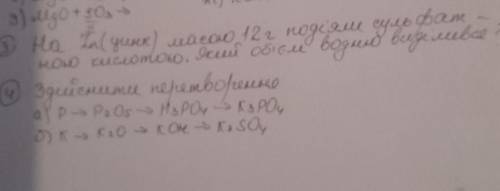 д) MgO + SO3 →
③ На Zn (цинк) масою 12 г подіяли сульфат-
ною кислотою. Який об'єм водню виділився
④ Здійснити перетворення
а) P → P2O5 → H3PO4 → K3PO4
б) K → K2O → KOH → K2SO4